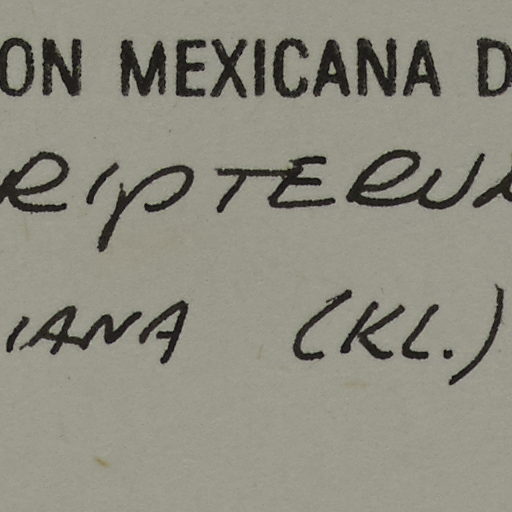 ON MEXICANA D
RIPTERU
IANA (KL.)